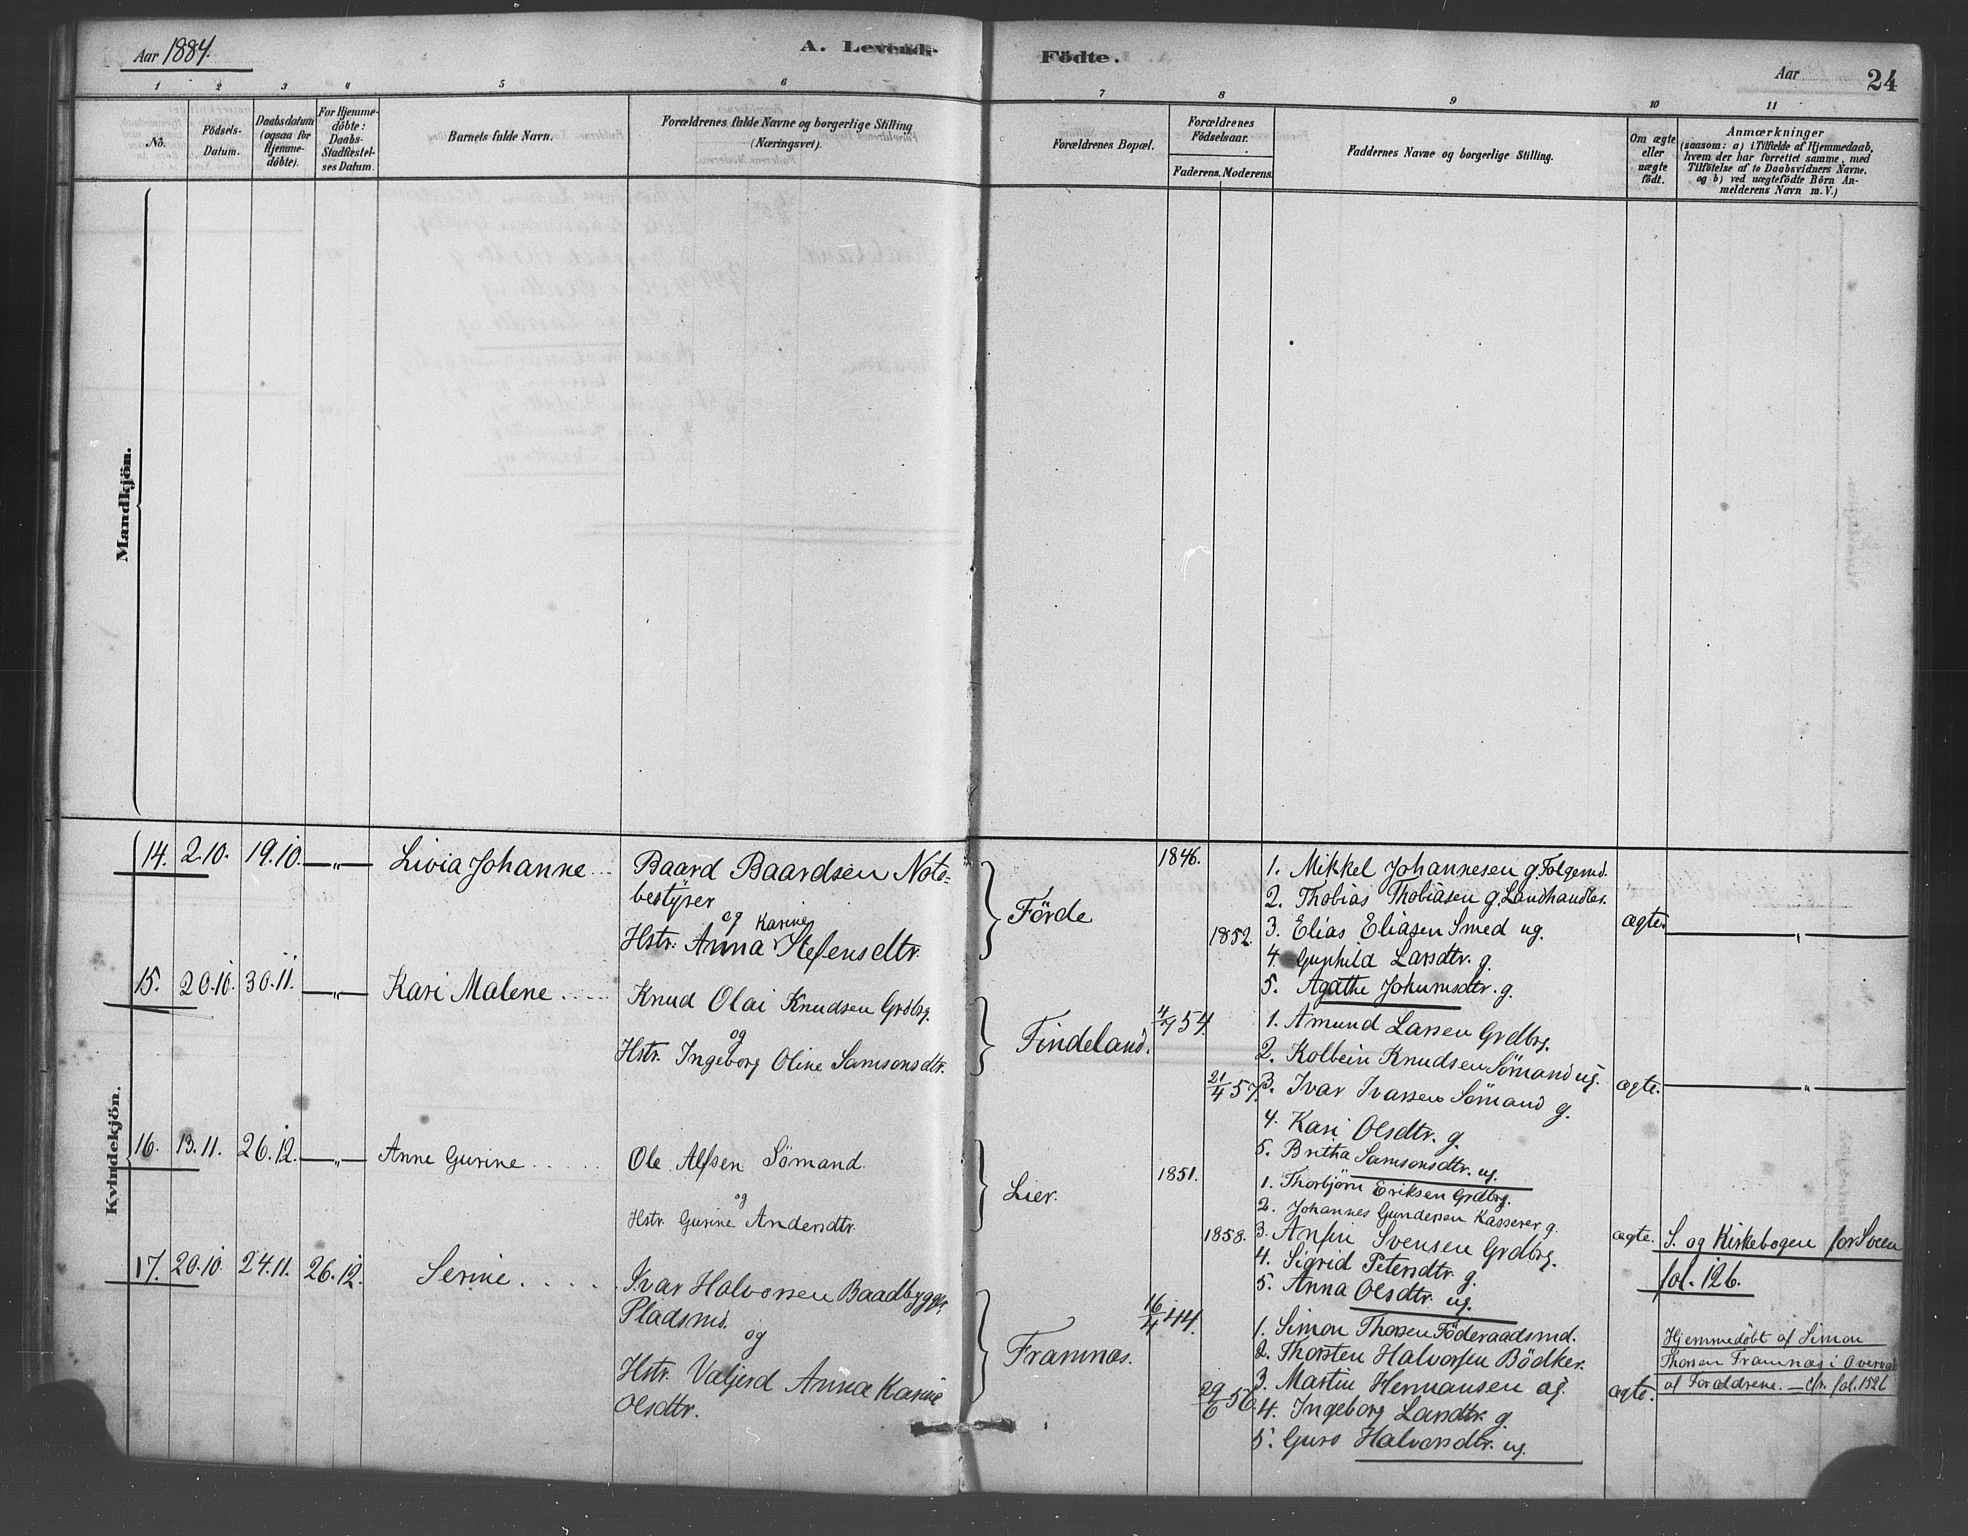 Aar 1884.
A. Levende Födte.
Aar
24
1 2 3 4 5 6 7 8 9 10 11
No.
Födsels-
Datum.
Daabsdatum
(ogsaa for
Hjemme-
döbte).
For Hjemme-
döbte:
Daabs-
Stadfæstel-
ses Datum.
Barnets fulde Navn.
Forældrenes fulde Navne og borgerlige Stilling
(Næringsvei).
Forældrenes Bopæl.
Forældrenes
Födselsaar.
Faderens. Moderens.
Faddernes Navne og borgerlige Stilling.
Om ægte
eller
uægte
födt.
Anmærkninger
(saasom: a) i Tilfælde af Hjemmedaab,
hvem der har forrettet samme, med
Tilföielse af to Daabsvidners Navne,
og b) ved uægtefödte Börn An-
melderens Navn m. V.)
Mandkjön.
Kvindekjön.
14. 2.10. 19.10. —„— Livia Johanne
Baard Baardsen Not-
bestyrer
og Karine
Hstr. Anna Stefensdtr.
Förde
1846.
1852.
1. Mikkel Johannesen g. Folgemd.
2. Thobias Thobiasen g. Landhandler.
3. Elias Eliasen Smed ug.
4. Gunhild Larsdtr. g.
5. Agathe Johannsdtr. g.
ægte.
—„—
15. 20.10. 30.11. —„— Kari Malene
Knud Olai Knudsen Grdbrg.
og
Hstr. Ingeborg Oline Samsonsdtr.
Findeland.
4/7 54.
21/4 57.
1. Amund Larsen Grdbrg.
2. Kolbein Knudsen Sömand ug.
3. Ivar Ivarsen Sömand g.
4. Kari Olsdtr. g.
5. Britha Samsonsdtr. ug.
ægte.
—„—
16. 13.11. 26.12. —„— Anne Gurine
Ole Alfsen Sömand.
og
Hstr. Gurine Andersdtr.
Lier.
1851.
1858.
1. Thorbjörn Eriksen Grdbrg.
2. Johannes Gundersen Kasserer g.
3. Anfin Svensen Grdbrg.
4. Sigrid Petersdtr. g.
5. Anna Olsdtr. ug.
ægte.
S. og Kirkebogen for Sveen
fol. 126.
17. 20.10. 24.11. 26.12. Serine
Ivar Halvorsen Baadbygger
Pladsmd.
og
Hstr. Valjerd Anna Karine
Olsdtr.
Framnæs.
16/4 44.
29/6 56.
1. Simon Thorsen Föderaadsmd.
2. Thorsten Halvorsen Bödker.
3. Martin Hermansen ug.
4. Ingeborg Larsdtr. g.
5. Guro Halvorsdtr. ug.
ægte.
Hjemmedöbt af Simon
Thorsen Framnæs i Overvær
af Forældrene. — cfr. fol. 152 6